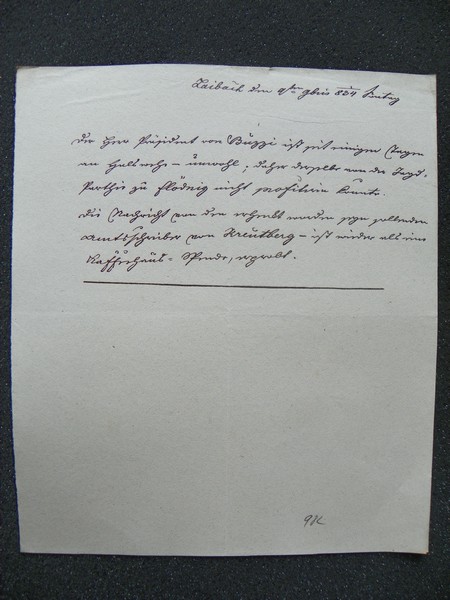 Laibach den 9ten 9bris 834
Der Herr Präsident von Buzzi ist seit einigen Tagen
an Halswehe - unwohl; daher derselbe von der Jagd-
Parthie zu Flödnig nicht profitiren konnte.
Die Nachricht von den erhenkt worden seyn sollenden
Amtsschreiber von Kreutberg - ist wieder als eine
Kaffeehaus-Spende, erprobt.